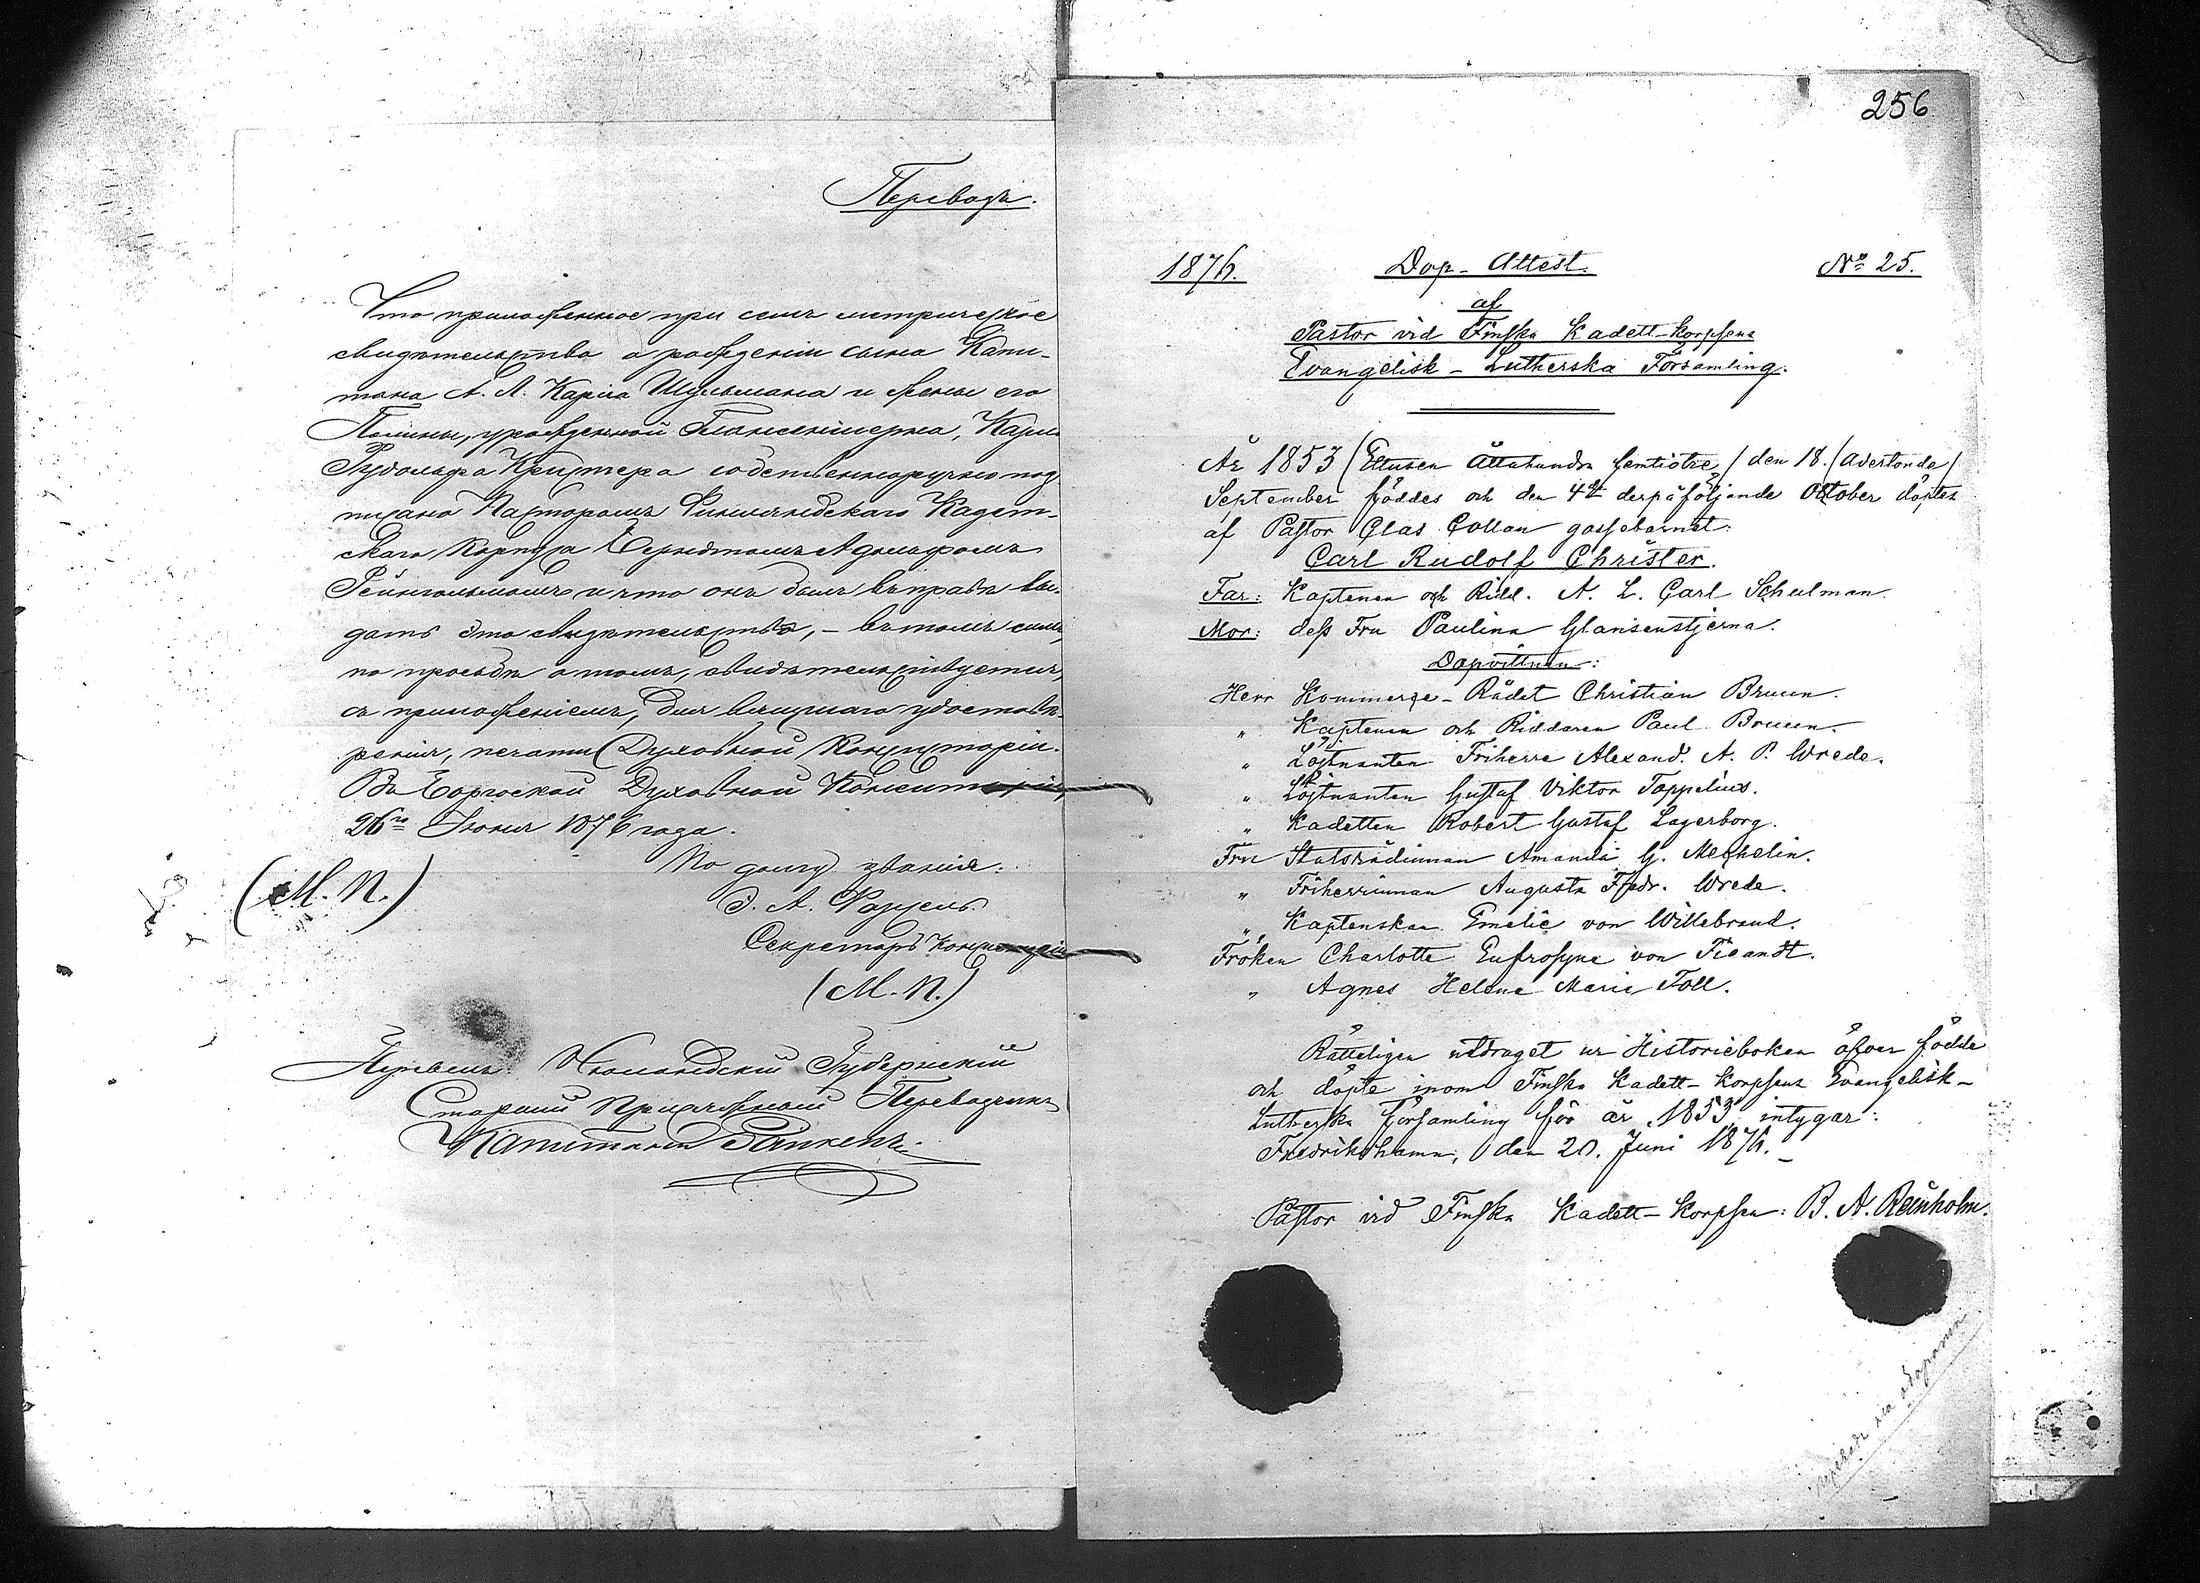 Переводъ.
Что приложенное при семъ метрическое
свидѣтельство о рожденіи сына Капи-
тана А. Л. Карла Шульмана и жены его
Полины, урожденной Глансеншерна, Карла
Рудольфа Кристера собственноручно под
писано Пасторомъ Финляндскаго Кадет-
скаго Корпуса Берндтомъ Адольфомъ
Рейнгольмомъ и что онъ былъ въ правѣ вы-
дать это свидѣтельство, – въ томъ симъ,
по просьбѣ о томъ, свидѣтельствуется,
съ приложеніемъ, для вящшаго удостовѣ-
ренія, печати Духовной Консисторіи.
Въ Боргоской Духовной Консисторіи,
26го Іюня 1876 года.
По долгу званія:
(М. П.)
Э. А.
Секретарь Консисторіи
(М. П.)
Перевелъ Нюландскій Губернскій
Старшій Присяжный Переводчикъ
Капитанъ
256
1876. Dop-Attest. No 25.
af
Pastor vid Finska Kadett-Korpsens
Evangelisk-Lutherska Församling.
År 1853 (Ettusen åttahundra femtiotre) den 18. (adertonde)
September föddes och den 4de derpåföljande October döptes
af Pastor Clas Collan gossebarnet:
Carl Rudolf Christer.
Far: Kaptenen och Ridd. A. L. Carl Schulman.
Mor: dess Fru Paulina Glansenstjerna.
Dopvittnen:
Herr Kommerse-Rådet Christian Bruun.
„ Kaptenen och Riddaren Paul Bruun.
„ Löjtnanten Friherre Alexand. A. P. Wrede.
„ Löjtnanten Gustaf Viktor Toppelius.
„ Kadetten Robert Gustaf Lagerborg.
Fru Statsrådinnan Amanda G. Mechelin.
„ Friherrinnan Augusta Fredr. Wrede.
„ Kaptenskan Emelie von Willebrand.
Fröken Charlotte Eufrosyne von Fieandt.
„ Agnes Helena Maria Toll.
Rätteligen utdraget ur Historieboken öfver födde
och döpte inom Finska Kadett-Korpsens Evangelisk-
Lutherska församling för år 1853, intygar:
Fredrikshamn, den 20. Juni 1876.
Pastor vid Finska Kadett-Korpsen: B. A. Reinholm.
Переводъ на оборотѣ